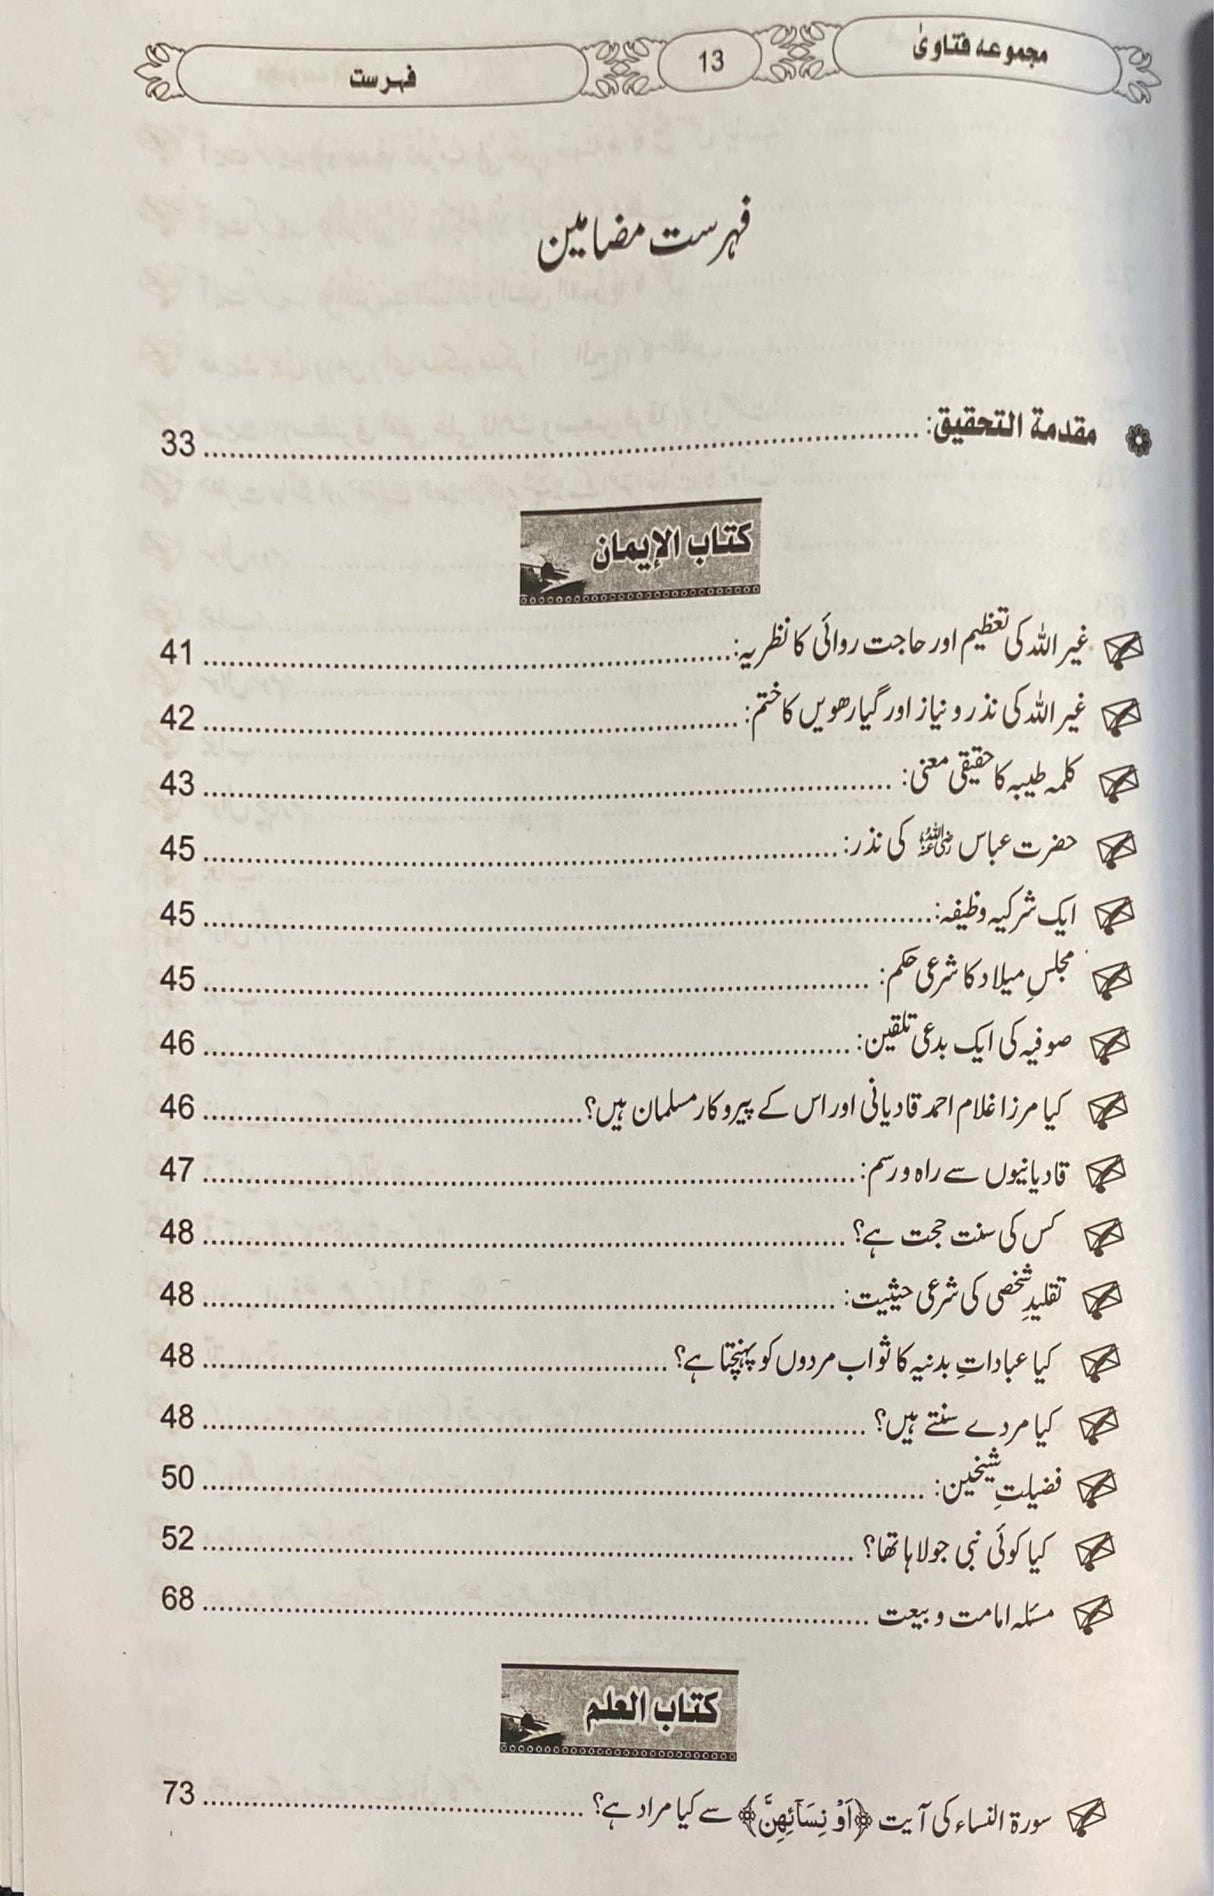 مجموعہ فتاویٰ 13 فہرست
فہرست مضامین
مقدمة التحقيق: 33
كتاب الإيمان
غیر اللہ کی تعظیم اور حاجت روائی کا نظریہ: 41
غیر اللہ کی نذر و نیاز اور گیارھویں کا ختم: 42
کلمہ طیبہ کا حقیقی معنی: 43
حضرت عباس رضی اللہ عنہ کی نذر: 45
ایک شرکیہ وظیفہ: 45
مجلسِ میلاد کا شرعی حکم: 45
صوفیہ کی ایک بدعی تلقین: 46
کیا مرزا غلام احمد قادیانی اور اس کے پیروکار مسلمان ہیں؟ 46
قادیانیوں سے راہ و رسم: 47
کس کی سنت حجت ہے؟ 48
تقلیدِ شخصی کی شرعی حیثیت: 48
کیا عباداتِ بدنیہ کا ثواب مردوں کو پہنچتا ہے؟ 48
کیا مردے سنتے ہیں؟ 48
فضیلتِ شیخین: 50
کیا کوئی نبی جولاہا تھا؟ 52
مسئلہ امامت و بیعت 68
كتاب العلم
سورۃ النساء کی آیت ﴿اَوْ نِسَآئِهِنَّ﴾ سے کیا مراد ہے؟ 73